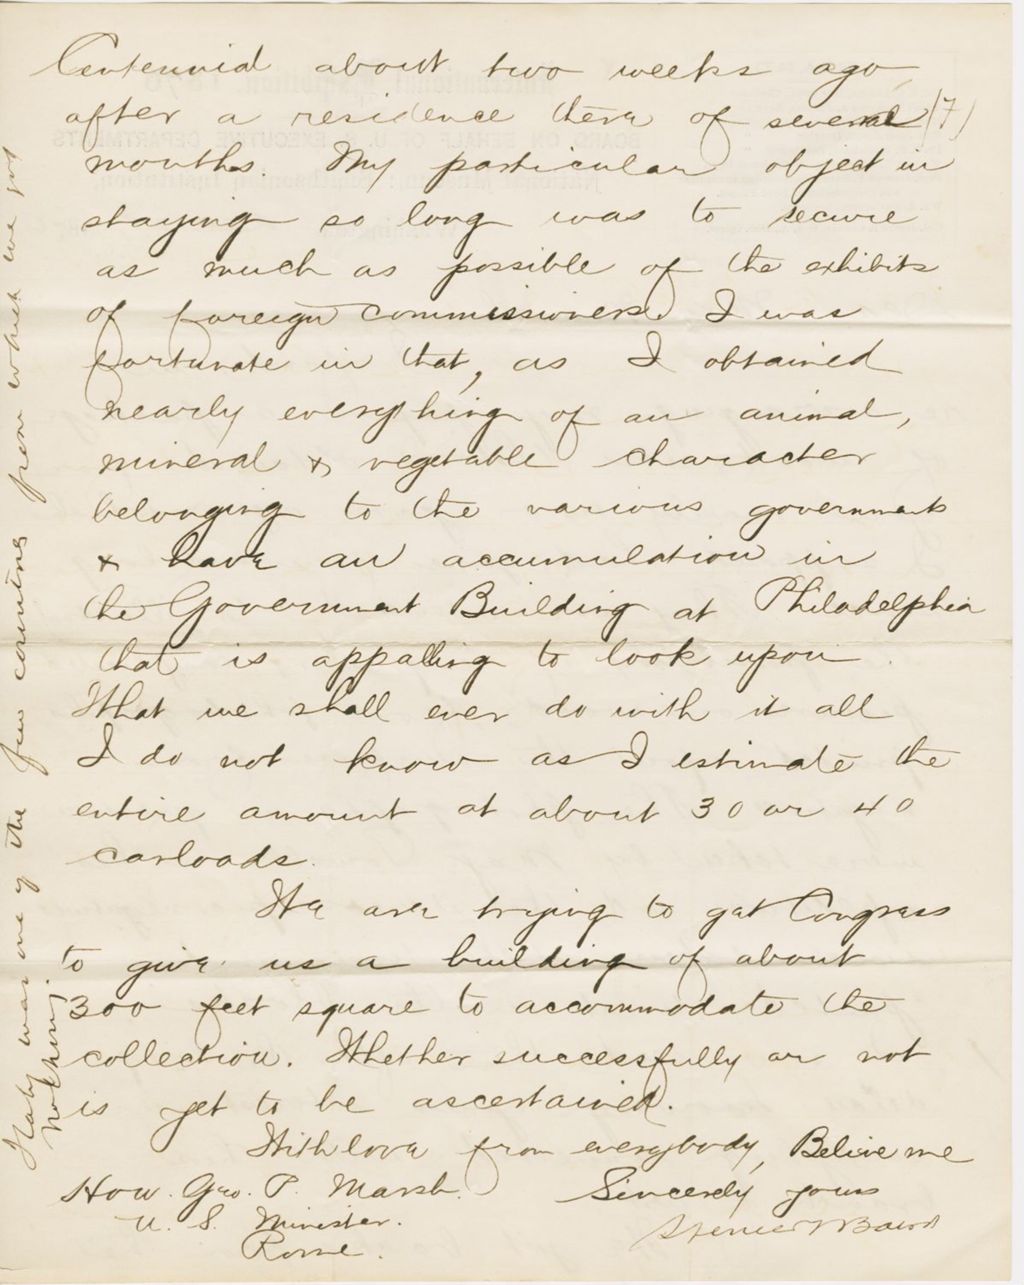 Centennial about two weeks ago,
after a residence there of several
months. My particular object in
staying so long was to secure
as much as possible of the exhibits
of foreign commissioners. I was
fortunate in that, as I obtained
nearly everything of an animal,
mineral & vegetable character
belonging to the various governments
& have an accumulation in
the Government Building at Philadelphia
that is appalling to look upon.
What we shall ever do with it all
I do not know as I estimate the
entire amount at about 30 or 40
carloads.
We are trying to get Congress
to give us a building of about
300 feet square to accommodate the
collection. Whether successfully or not
is yet to be ascertained.
With love from everybody, Believe me
Sincerely yours
Spencer F Baird
Hon. Geo. P. Marsh.
U. S. Minister.
Rome.
Italy was one of the few countries from which we got
nothing.
(7)
International Exhibition, 1876
BOARD ON BEHALF OF U. S. EXECUTIVE DEPARTMENTS
National Museum: Smithsonian Institution,